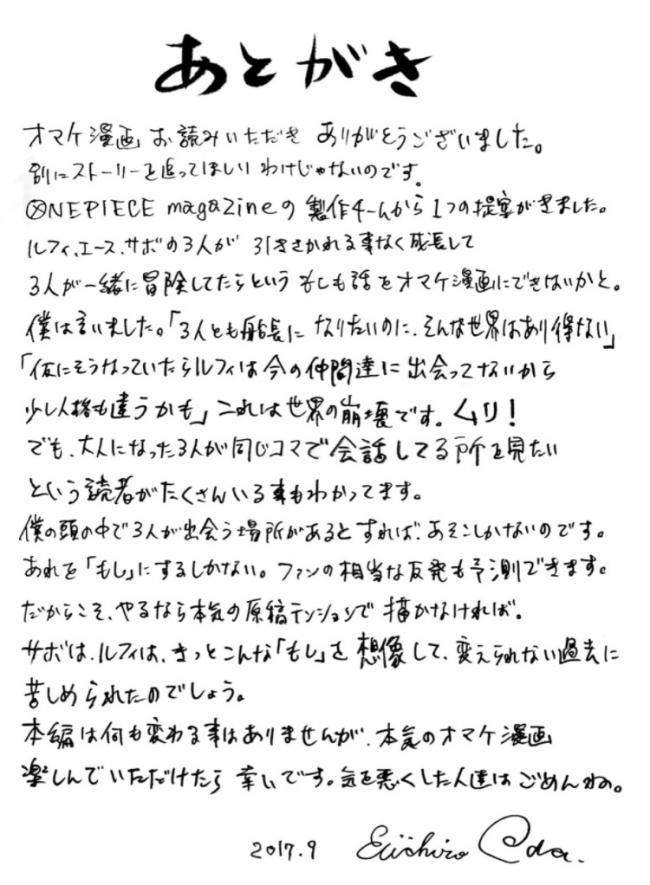 あとがき
オマケ漫画 お読みいただき ありがとうございました。
別にストーリーを追ってほしい わけじゃないのです。
ONEPIECE magazineの 製作チームから 1つの提案がきました。
ルフィ、エース、サボの3人が 引きさかれる事なく成長して
3人が一緒に冒険してたらという もしも話をオマケ漫画にできないかと。
僕は言いました。「3人とも船長に なりたいのに、そんな世界はあり得ない」
「仮にそうなっていたらルフィは今の仲間達に出会ってないから
少し人格も違うかも」これは世界の崩壊です。ムリ!
でも、大人になった3人が同じコマで会話してる所を見たい
という読者がたくさんいる事もわかってます。
僕の頭の中で3人が出会う場所があるとすれば、あそこしかないのです。
あれを「もし」にするしかない。ファンの相当な反発も予測できます。
だからこそ、やるなら本気の原稿テンションで 描かなければ。
サボは、ルフィは、きっとこんな「もし」を 想像して、変えられない過去に
苦しめられたのでしょう。
本編は何も変わる事はありませんが、本気のオマケ漫画
楽しんでいただけたら 幸いです。気を悪くした人達は ごめんねの。
2017.9 Eiichiro Oda.